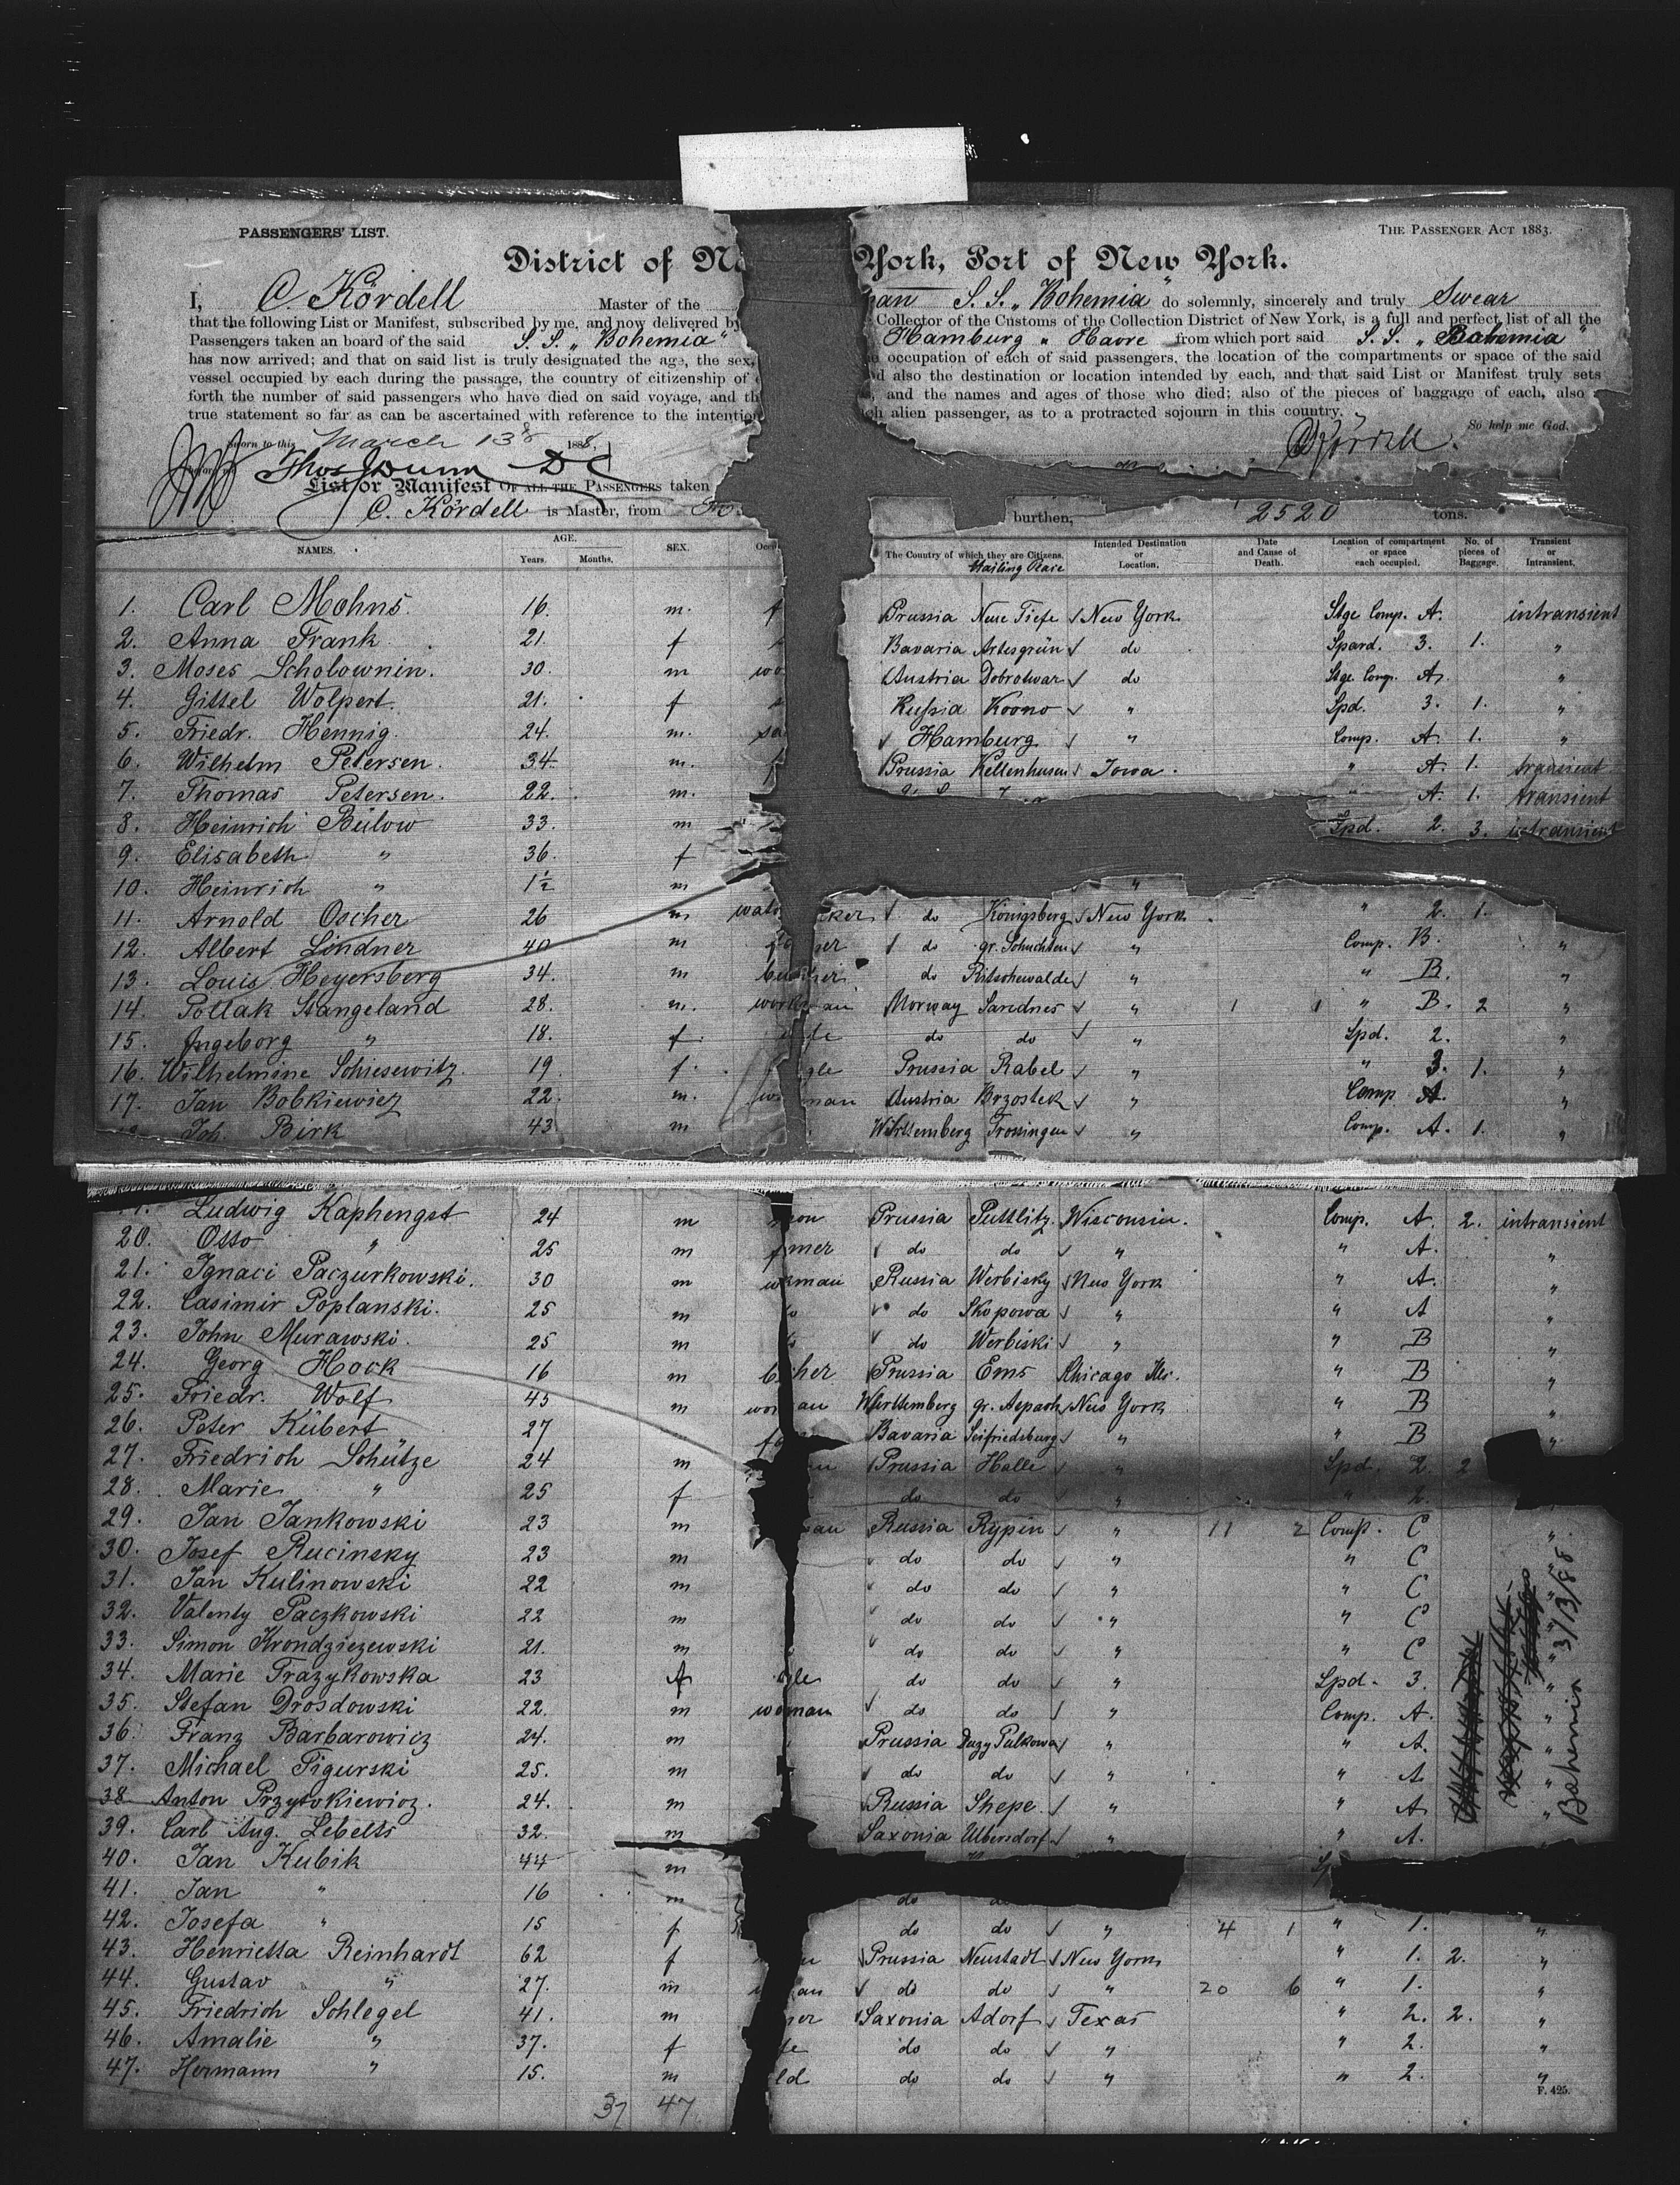 PASSENGERS' LIST. THE PASSENGER ACT 1883.
District of Ne York, Port of New York.
I, C. Kördell Master of the an S. S. „Bohemia" do solemnly, sincerely and truly Swear
that the following List or Manifest, subscribed by me, and now delivered by Collector of the Customs of the Collection District of New York, is a full and perfect list of all the
Passengers taken an board of the said S. S. „Bohemia" Hamburg „ Havre from which port said S. S. „Bohemia"
has now arrived; and that on said list is truly designated the age, the sex, occupation of each of said passengers, the location of the compartments or space of the said
vessel occupied by each during the passage, the country of citizenship of also the destination or location intended by each, and that said List or Manifest truly sets
forth the number of said passengers who have died on said voyage, and th and the names and ages of those who died; also of the pieces of baggage of each, also
true statement so far as can be ascertained with reference to the intention alien passenger, as to a protracted sojourn in this country.
So help me God.
Sworn to this March 13th 1888. CKördell.
Thos J Dunn DC
List or Manifest OF ALL THE PASSENGERS taken
C. Kördell is Master, from burthen, 2520 tons.
NAMES. AGE. Years. Months. SEX. The Country of which they are Citizens. Intended Destination or Location. Date and Cause of Death. Location of compartment or space each occupied. No. of pieces of Baggage. Transient or Intransient.
1. Carl Mohns. 16. m. f Prussia Neue Tiefe New York Stge Comp. A. intransient
2. Anna Frank 21. f Bavaria Artesgrün do Spard. 3. 1. „
3. Moses Scholownin. 30. m wo Austria Dobrotwar do Stge Comp. A. „
4. Gittel Wolpert. 21. f Russia Koono „ Spd. 3. 1. „
5. Friedr. Hennig. 24. m. Hamburg „ Comp. A. 1. „
6. Wilhelm Petersen. 34. m. f Prussia Kellenhusen Iowa. „ A. 1. transient
7. Thomas Petersen. 22. m. „ A. 1. transient
8. Heinrich Bülow 33. m Spd. 2. 3. intransient
9. Elisabeth „ 36. f
10. Heinrich „ 1½ m „
11. Arnold Oscher 26 m wat ker do Königsberg New York „ 2. 1.
12. Albert Lindner 40 m er do gr. Schuchten „ Comp. B. „
13. Louis Heyersberg 34. m do Ritschewalde „ „ B. „
14. Pollak Stangeland 28. m. workman Norway Sarednes „ 1 1 „ B. 2 „
15. Ingeborg „ 18. f. do do „ Spd. 2. „
16. Wilhelmine Schiesewitz. 19. f. gle Prussia Rabel „ „ 3. 1. „
17. Jan Bobkiewicz 22. m. man Austria Brzostek „ Comp A. „
Joh. Birk 43 m Württemberg Trossingen „ Comp. A. 1. „
Ludwig Kaphengst 24 m son Prussia Puttlitz. Wisconsin. Comp. A. 2. intransient
20. Otto „ 25 m mer do do „ „ A. „
21. Ignaci Paczurkowski. 30 m kman Russia Werbisky New York „ A. „
22. Casimir Poplanski. 25 m do Skopowa „ „ A „
23. John Murawski. 25 m do Werbiski „ „ B „
24. Georg Hock 16 m her Prussia Ems Chicago Ills. „ B „
25. Friedr. Wolf 45 m wor an Württemberg gr. Aspach New York „ B „
26. Peter Kübert 27 fa Bavaria Seifriedsburg „ „ B „
27. Friedrich Schütze 24 m Prussia Halle „ Spd. 2. 2
28. Marie „ 25 f do do „ „ 2.
29. Jan Jankowski 23 m an Russia Rypin „ 11 2 Comp. C „
30. Josef Rucinsky 23 m do do „ „ C „
31. Jan Kulinowski 22 m do do „ „ C „
32. Valenty Paczkowski 22 m do do „ „ C „
33. Simon Krondziezewski 21. m do do „ „ C „
34. Marie Trazykowska 23 f gle do do „ Spd. 3. „
35. Stefan Drosdowski 22. m wo man do do „ Comp. A. „
36. Franz Barbarowicz 24. m Prussia Duzy Pulkowa „ „ A. „
37. Michael Figurski 25. m do do „ „ A „
38 Anton Przytokiewicz. 24. m Russia Shepe. „ „ A „
39. Carl Aug. Lebelts 32. m Saxonia Ulbersdorf „ „ A.
40. Jan Kubik 44 m
41. Jan „ 16 m do
42. Josefa „ 15 f do do „ 4 1 „ 1. „
43. Henrietta Reinhardt 62 f Prussia Neustadt New York „ 1. 2. „
44. Gustav „ 27. m an do do „ 20 6 „ 1. „
45. Friedrich Schlegel 41. m er Saxonia Adorf Texas „ 2. 2. „
46. Amalie „ 37. f do do „ „ 2. „
47. Hermann „ 15. m ld do do „ „ 2. „
37 47
F. 425.
Bohemia 3/13/88